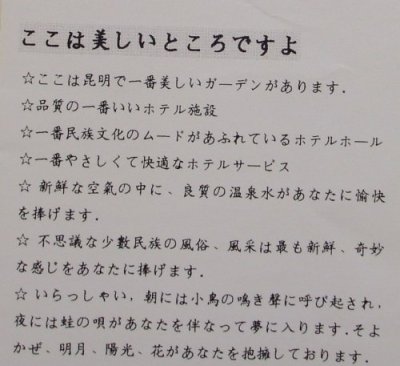 ここは美しいところですよ
☆ここは昆明で一番美しいガーデンがあります.
☆品質の一番いいホテル施設
☆一番民族文化のムードがあふれているホテルホール
☆一番やさしくて快適なホテルサービス
☆ 新鮮な空氣の中に、良質の温泉水があなたに愉快
を捧げます.
☆ 不思議な少數民族の風俗、風采は最も新鮮、奇妙
な感じをあなたに捧げます.
☆ いらっしゃい, 朝には小鳥の鳴き聲に呼び起され,
夜には蛙の唄があなたを伴なって夢に入ります.そよ
かぜ、明月、陽光、花があなたを抱擁しております.